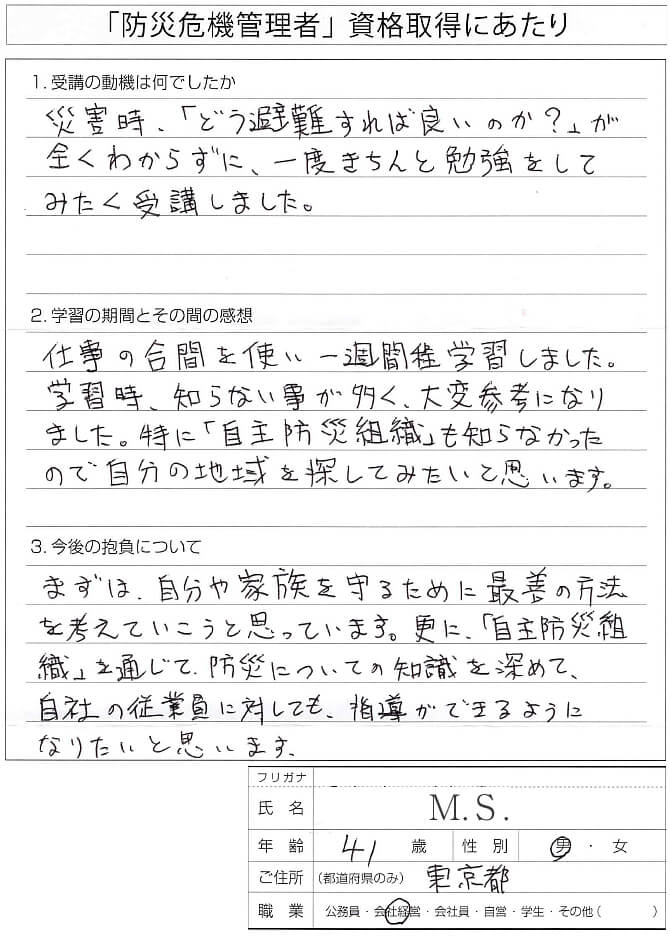 「防災危機管理者」資格取得にあたり
1. 受講の動機は何でしたか
災害時、「どう避難すれば良いのか?」が
全くわからずに、一度きちんと勉強をして
みたく受講しました。
2. 学習の期間とその間の感想
仕事の合間を使い一週間程学習しました。
学習時、知らない事が多く、大変参考になり
ました。特に「自主防災組織」も知らなかった
ので自分の地域を探してみたいと思います。
3. 今後の抱負について
まずは、自分や家族を守るために最善の方法
を考えていこうと思っています。更に、「自主防災組
織」を通じて、防災についての知識を深めて、
自社の従業員に対しても、指導ができるように
なりたいと思います、
フリガナ
氏 名 M.S.
年 齢 41 歳 性 別 男 ・ 女
ご住所 (都道府県のみ) 東京都
職 業 公務員・会社経営・会社員・自営・学生・その他( )